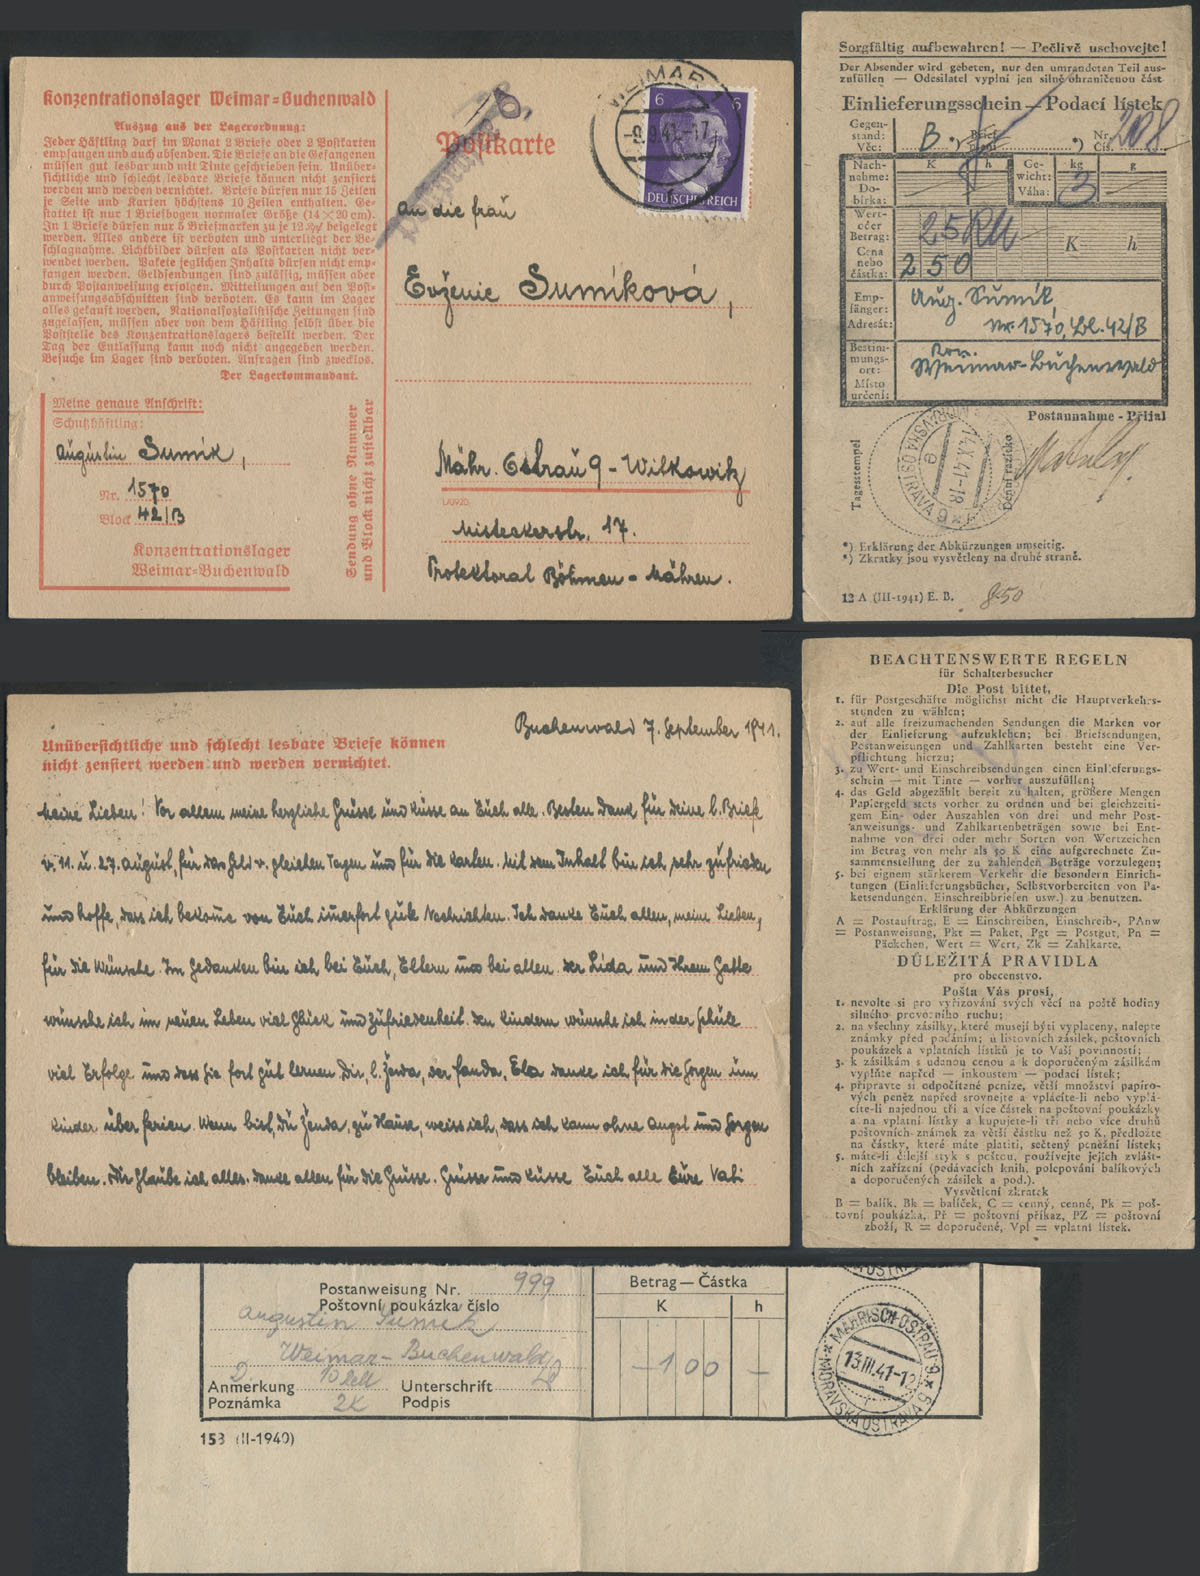 Konzentrationslager Weimar-Buchenwald
Auszug aus der Lagerordnung:
Jeder Häftling darf im Monat 2 Briefe oder 2 Postkarten
empfangen und auch absenden. Die Briefe an die Gefangenen
müssen gut lesbar und mit Tinte geschrieben sein. Unüber-
sichtliche und schlecht lesbare Briefe können nicht zensiert
werden und werden vernichtet. Briefe dürfen nur 15 Zeilen
je Seite und Karten höchstens 10 Zeilen enthalten. Ge-
stattet ist nur 1 Briefbogen normaler Größe (14×20 cm).
In 1 Briefe dürfen nur 5 Briefmarken zu je 12 Rpf beigelegt
werden. Alles andere ist verboten und unterliegt der Be-
schlagnahme. Lichtbilder dürfen als Postkarten nicht ver-
wendet werden. Pakete jeglichen Inhalts dürfen nicht emp-
fangen werden. Geldsendungen sind zulässig, müssen aber
durch Postanweisung erfolgen. Mitteilungen auf den Post-
anweisungsabschnitten sind verboten. Es kann im Lager
alles gekauft werden. Nationalsozialistische Zeitungen sind
zugelassen, müssen aber von dem Häftling selbst über die
Poststelle des Konzentrationslagers bestellt werden. Der
Tag der Entlassung kann noch nicht angegeben werden.
Besuche im Lager sind verboten. Anfragen sind zwecklos.
Der Lagerkommandant.
Meine genaue Anschrift:
Schutzhäftling:
Augustin Sumik,
Nr. 1570
Block 42/B
Konzentrationslager
Weimar-Buchenwald
Sendung ohne Nummer
und Block nicht zustellbar
Postkarte
WEIMAR
-9.9.41.-17
6 6
DEUTSCHES REICH
An die Frau
Evženie Sumíková,
Mähr. Ostrau 9 - Wilkowitz
Misteckerstr. 17.
Protektorat Böhmen - Mähren.
Sorgfältig aufbewahren! — Pečlivě uschovejte!
Der Absender wird gebeten, nur den umrandeten Teil aus-
zufüllen — Odesílatel vyplní jen silně ohraničenou část
Einlieferungsschein — Podací lístek
Gegen-
stand:
Věc:
B
Nr.
Čís.
208
Nach-
nahme:
Do-
bírka:
K h
Ge-
wicht:
Váha:
kg g
3
Wert-
oder
Betrag:
Cena
nebo
částka:
25 RM
250
K h
Emp-
fänger:
Adresát:
Aug. Sumík,
Nr. 1570, Bl. 42/B
Bestim-
mungs-
ort:
Místo
určení:
Weimar-Buchenwald
Postannahme - Příjal
Tagesstempel
MORAVSKÁ OSTRAVA 9
4.X.41-18
Denní razítko
*) Erklärung der Abkürzungen umseitig.
*) Zkratky jsou vysvětleny na druhé straně.
12 A (III-1941) E. B.
8·50
Unübersichtliche und schlecht lesbare Briefe können
nicht zensiert werden und werden vernichtet.
Buchenwald 7. September 1941.
Meine Lieben! Vor allem meine herzliche Grüsse und Küsse an Euch alle. Besten Dank für deine l. Brief
v. 11. u. 27. August, für das Geld v. gleichen Tagen und für die Karten. Mit dem Inhalt bin ich sehr zufrieden
und hoffe, dass ich bekomme von Euch immerfort gute Nachrichten. Ich danke Euch allen, meine Lieben,
für die Wünsche. Im Gedanken bin ich bei Euch, Eltern und bei allen. Der Lida und Ihrem Gatte
wünsche ich im neuen Leben viel Glück und Zufriedenheit. Den Kindern wünsche ich in der Schule
viel Erfolge und dass Sie fort gut lernen. Dir, l. Ženda, der Fanda, Ela danke ich für die Sorgen um
Kinder über Ferien. Wenn bist, Du Ženda, zu Hause, weiss ich, dass ich kann ohne Angst und Sorgen
bleiben. Dir Glaube ich alles. Danke allen für die Grüsse. Grüsse und Küsse Euch alle Eure Vati
BEACHTENSWERTE REGELN
für Schalterbesucher
Die Post bittet,
1. für Postgeschäfte möglichst nicht die Hauptverkehrs-
stunden zu wählen;
2. auf alle freizumachenden Sendungen die Marken vor
der Einlieferung aufzukleben; bei Briefsendungen,
Postanweisungen und Zahlkarten besteht eine Ver-
pflichtung hierzu;
3. zu Wert- und Einschreibsendungen einen Einlieferungs-
schein — mit Tinte — vorher auszufüllen;
4. das Geld abgezählt bereit zu halten, größere Mengen
Papiergeld stets vorher zu ordnen und bei gleichzeiti-
gem Ein- oder Auszahlen von drei und mehr Post-
anweisungs- und Zahlkartenbeträgen sowie bei Ent-
nahme von drei oder mehr Sorten von Wertzeichen
im Betrag von mehr als 50 K eine aufgerechnete Zu-
sammenstellung der zu zahlenden Beträge vorzulegen;
5. bei eignem stärkerem Verkehr die besondern Einrich-
tungen (Einlieferungsbücher, Selbstvorbereiten von Pa-
ketsendungen, Einschreibbriefen usw.) zu benutzen.
Erklärung der Abkürzungen
A = Postauftrag, E = Einschreiben, Einschreib-, PAnw
= Postanweisung, Pkt = Paket, Pgt = Postgut, Pn =
Päckchen, Wert = Wert, Zk = Zahlkarte.
DŮLEŽITÁ PRAVIDLA
pro obecenstvo.
Pošta Vás prosí,
1. nevolte si pro vyřizování svých věcí na poště hodiny
silného provozního ruchu;
2. na všechny zásilky, které musejí býti vyplaceny, nalepte
známky před podáním; u listovních zásilek, poštovních
poukázek a vplatních lístků je to Vaší povinností;
3. k zásilkám s udanou cenou a k doporučeným zásilkám
vyplňte napřed — inkoustem — podací lístek;
4. připravte si odpočítané peníze, větší množství papíro-
vých peněz napřed srovnejte a vplácíte-li nebo vyplá-
cíte-li najednou tři a více částek na poštovní poukázky
a na vplatní lístky a kupujete-li tři nebo více druhů
poštovních známek za větší částku než 50 K, předložte
na částky, které máte platiti, sečtený peněžní lístek;
5. máte-li čilejší styk s poštou, používejte jejích zvlášt-
ních zařízení (podávacích knih, polepování balíkových
a doporučených zásilek a pod.).
Vysvětlení zkratek
B = balík, Bk = balíček, C = cenný, cenné, Pk = poš-
tovní poukázka, Př = poštovní příkaz, PZ = poštovní
zboží, R = doporučené, Vpl = vplatní lístek.
Postanweisung Nr. 999
Poštovní poukázka číslo
Augustin Sumik
Weimar-Buchenwald
Anmerkung
Poznámka
2K
Unterschrift
Podpis
Betrag — Částka
K h
-100 -
MÄHRISCH OSTRAU 9
13.III.41-12
MORAVSKÁ OSTRAVA 9
153 (II-1940)